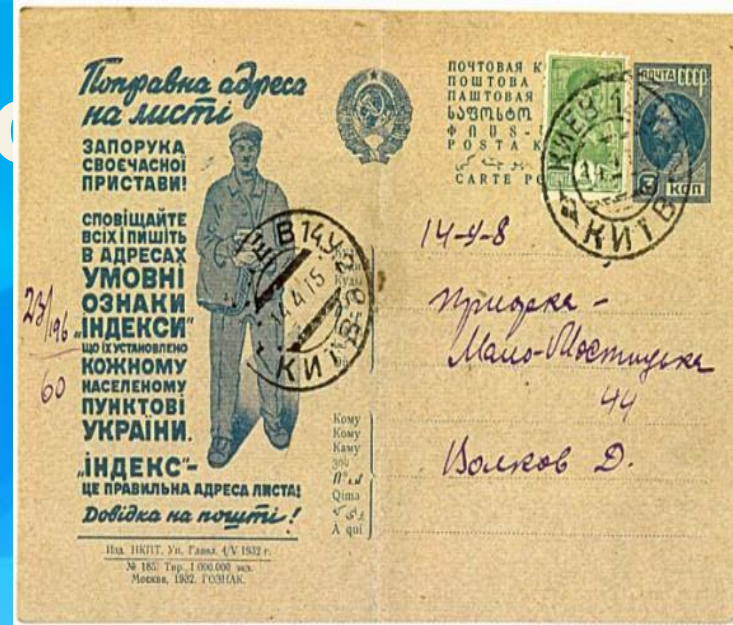 Поправна адреса
на листі
ЗАПОРУКА
СВОЄЧАСНОЇ
ПРИСТАВИ!
СПОВІЩАЙТЕ
ВСІХ І ПИШІТЬ
В АДРЕСАХ
УМОВНІ
ОЗНАКИ
„ІНДЕКСИ"
ЩО ЇХ УСТАНОВЛЕНО
КОЖНОМУ
НАСЕЛЕНОМУ
ПУНКТОВІ
УКРАЇНИ.
„ІНДЕКС"-
ЦЕ ПРАВИЛЬНА АДРЕСА ЛИСТА!
Довідка на пошті!
Изд. НКПТ. Уп. Главл. 4/V 1932 г.
№ 185. Тир. 1 000.000 экз.
Москва, 1932. ГОЗНАК.
23/196
60
ПОЧТОВАЯ К
ПОШТОВА
ПАШТОВАЯ
ՓՈՍՏ-
POSTA K
CARTE PO
ПОЧТА СССР
3 КОП
КИЕВ 1
КИЇВ
14.У.8
14 4 15
КИЇВ
14-У-8
Приорка -
Мало-Мостицька
44
Волков Д.
Куды
Кому
Кому
Каму
Qima
À qui